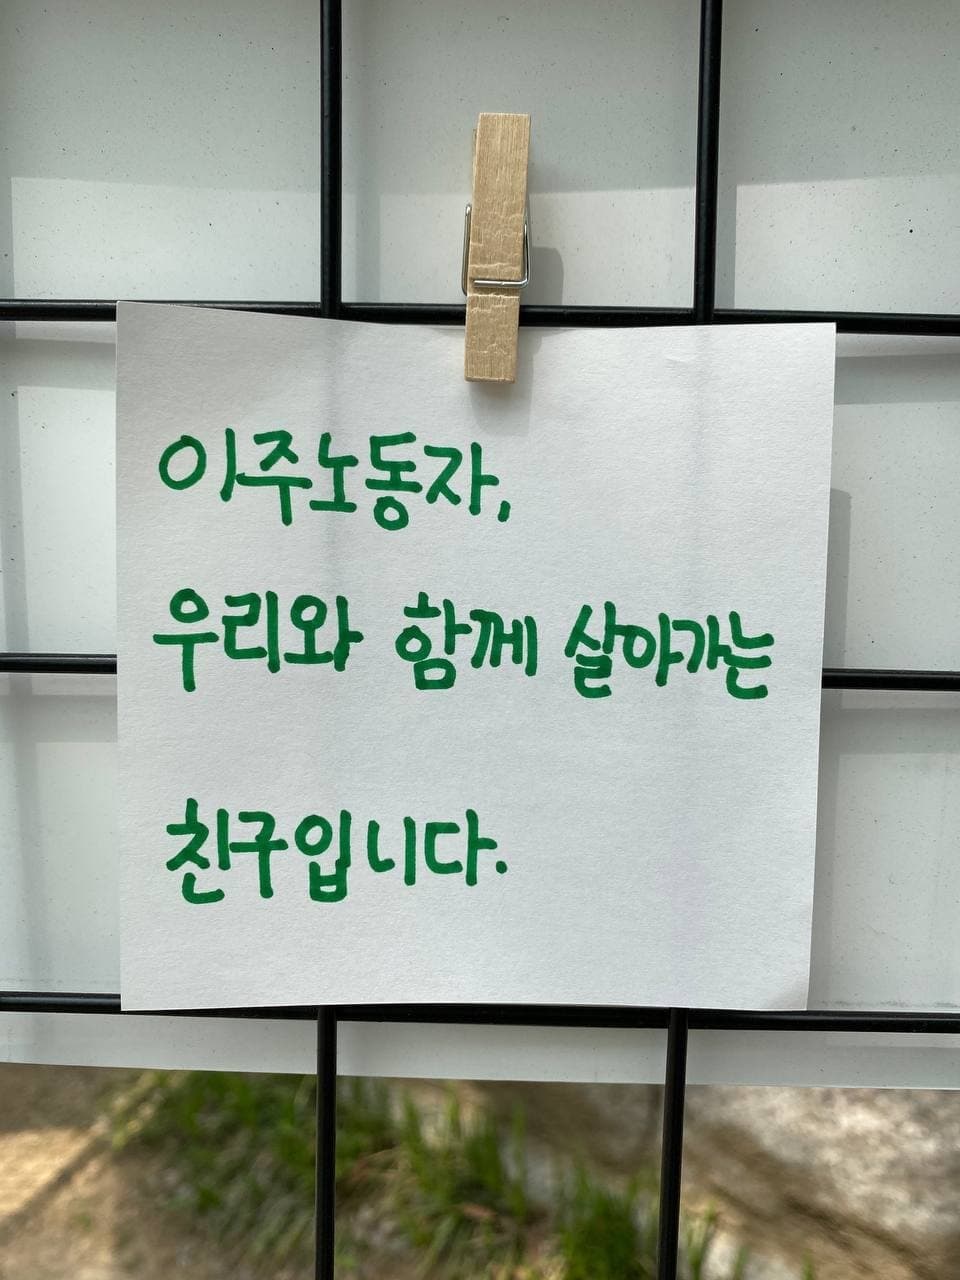 이주노동자,
우리와 함께 살아가는
친구입니다.